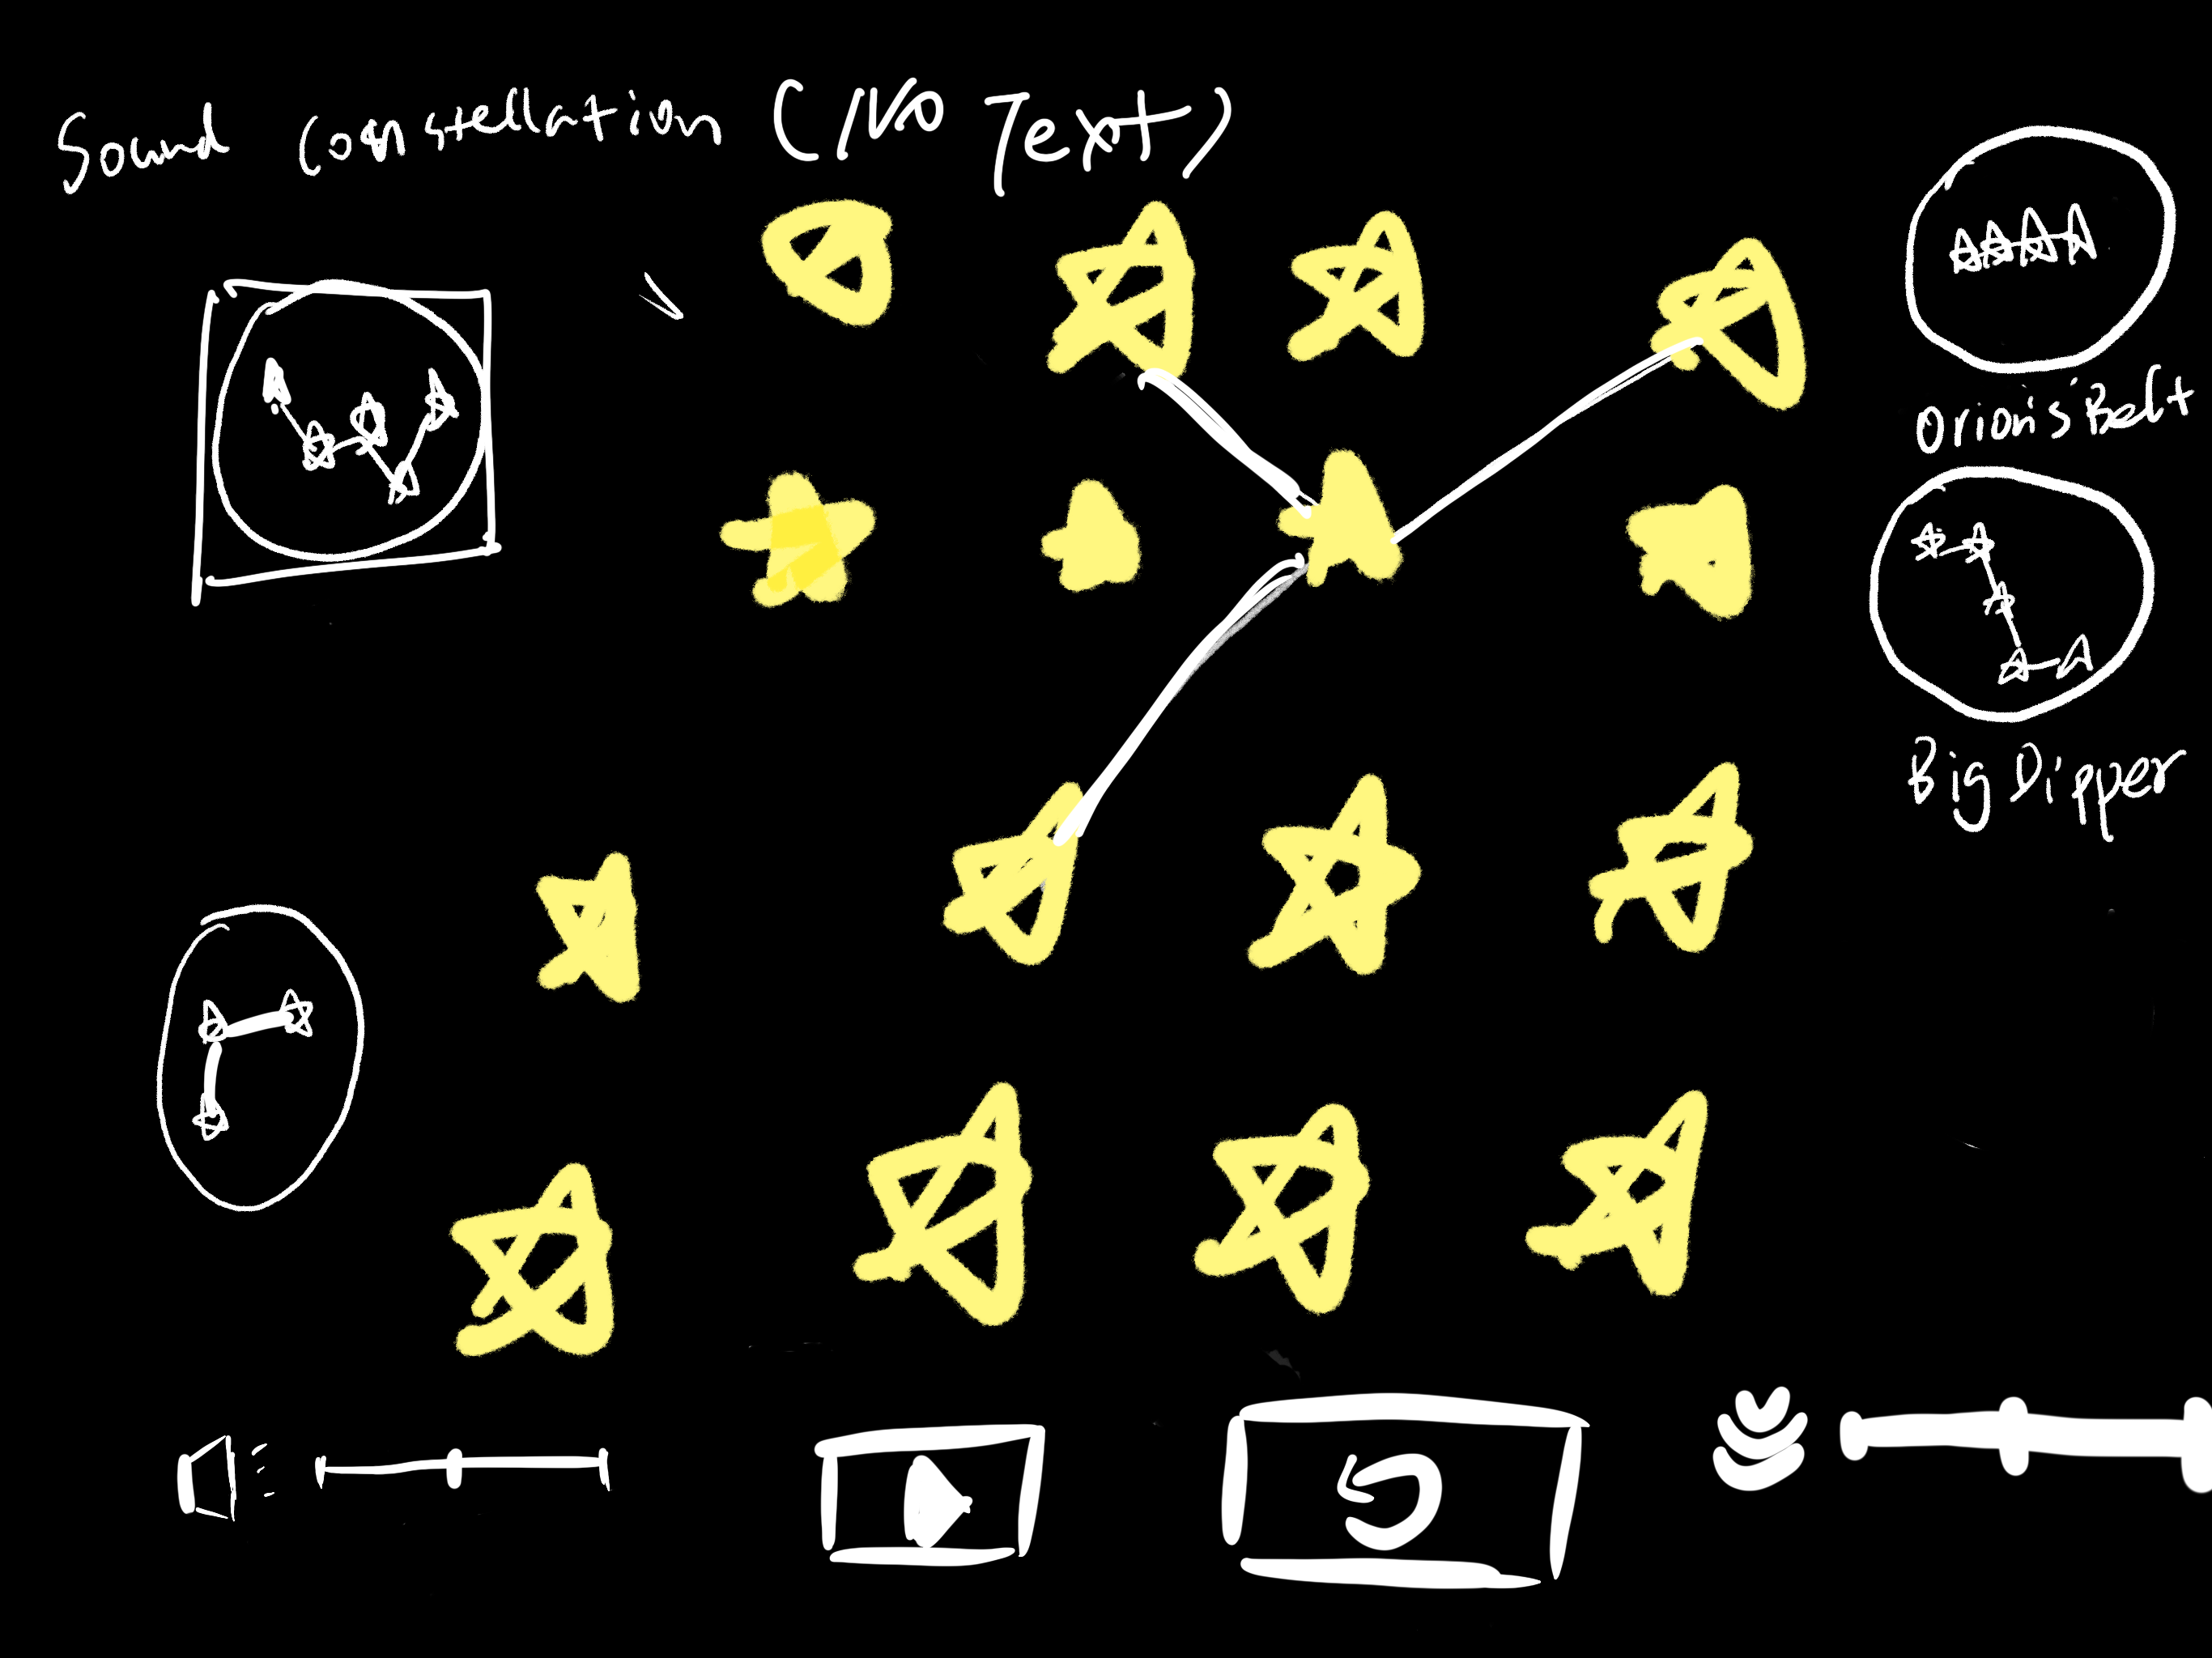 Sound Constellation (No Text)
Orion's Belt
Big Dipper